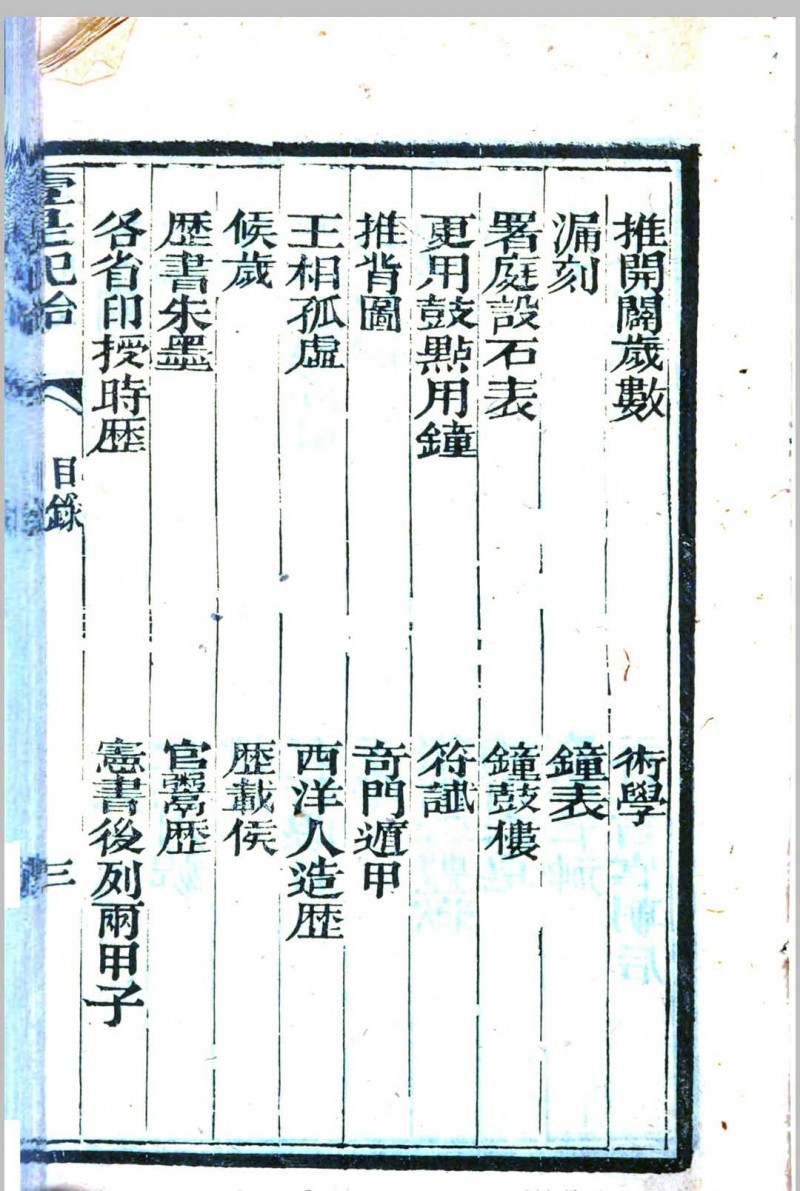 推開闢歲數 術學
漏刻 鐘表
署庭設石表 鐘鼓樓
更用鼓點用鐘 符讖
推背圖 奇門遁甲
王相孤虛 西洋人造歴
候歲 歴載侯
歴書朱墨 官鬻歴
各省印授時歴 憲書後列兩甲子
壹是紀始 目錄 三